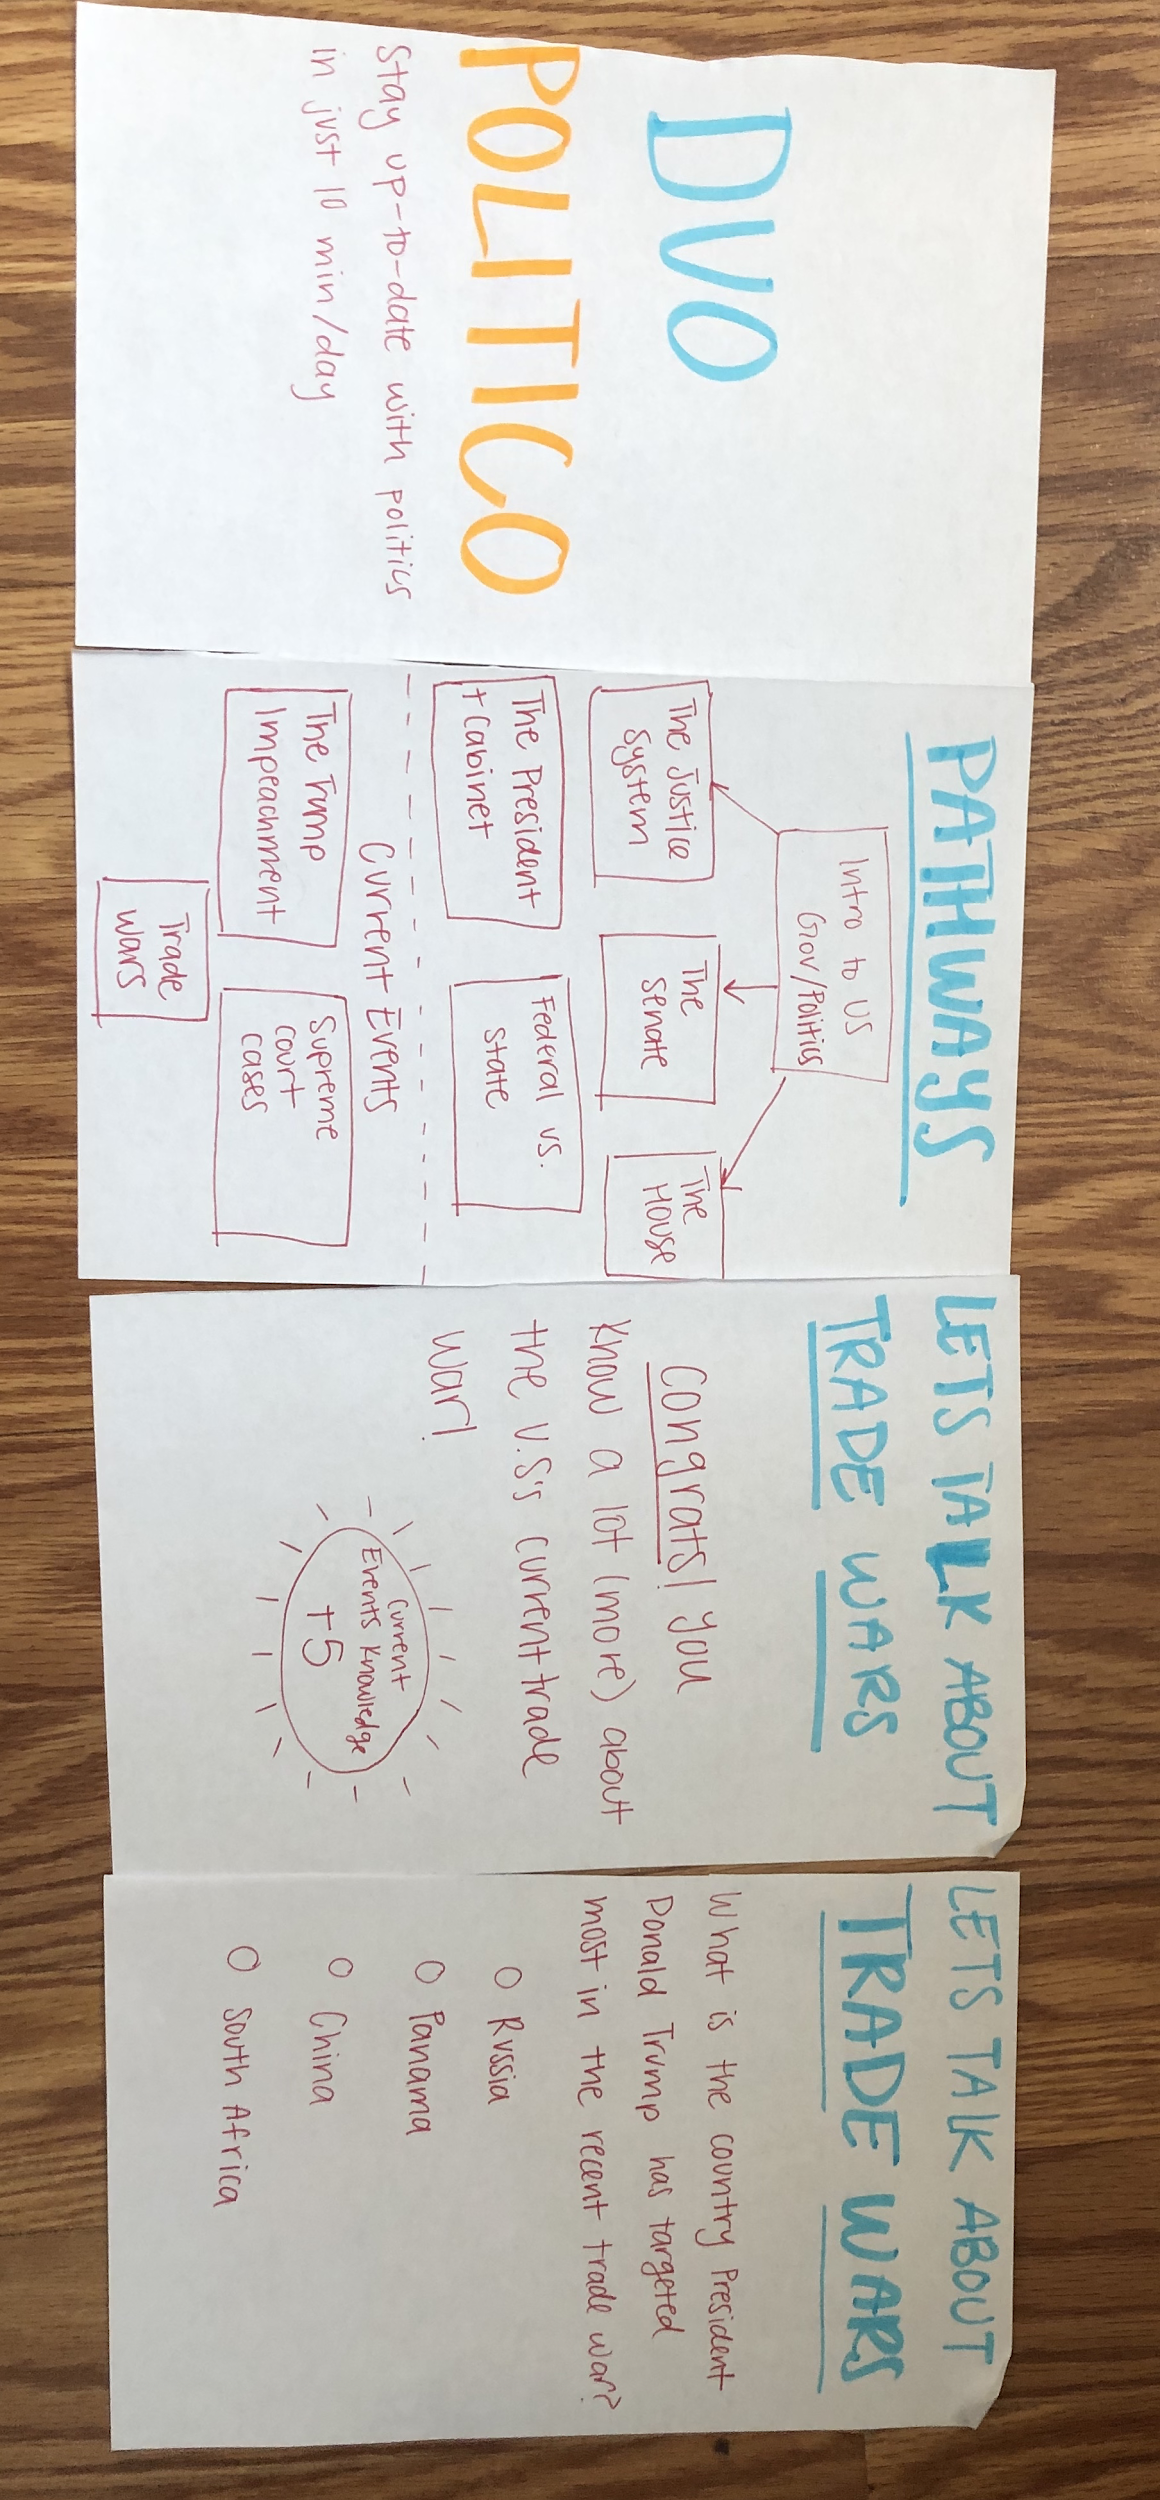 DUO
POLITICO
Stay up-to-date with politics
in just 10 min/day
PATHWAYS
Intro to US
Gov/Politics
The Justice
System
The
Senate
The
House
The President
+ Cabinet
Federal vs.
State
Current Events
The Trump
Impeachment
Supreme
Court
Cases
Trade
Wars
LETS TALK ABOUT
TRADE WARS
Congrats! You
know a lot (more) about
the U.S's current trade
war!
Current
Events Knowledge
+5
LETS TALK ABOUT
TRADE WARS
What is the country President
Donald Trump has targeted
most in the recent trade war?
O Russia
O Panama
O China
O South Africa